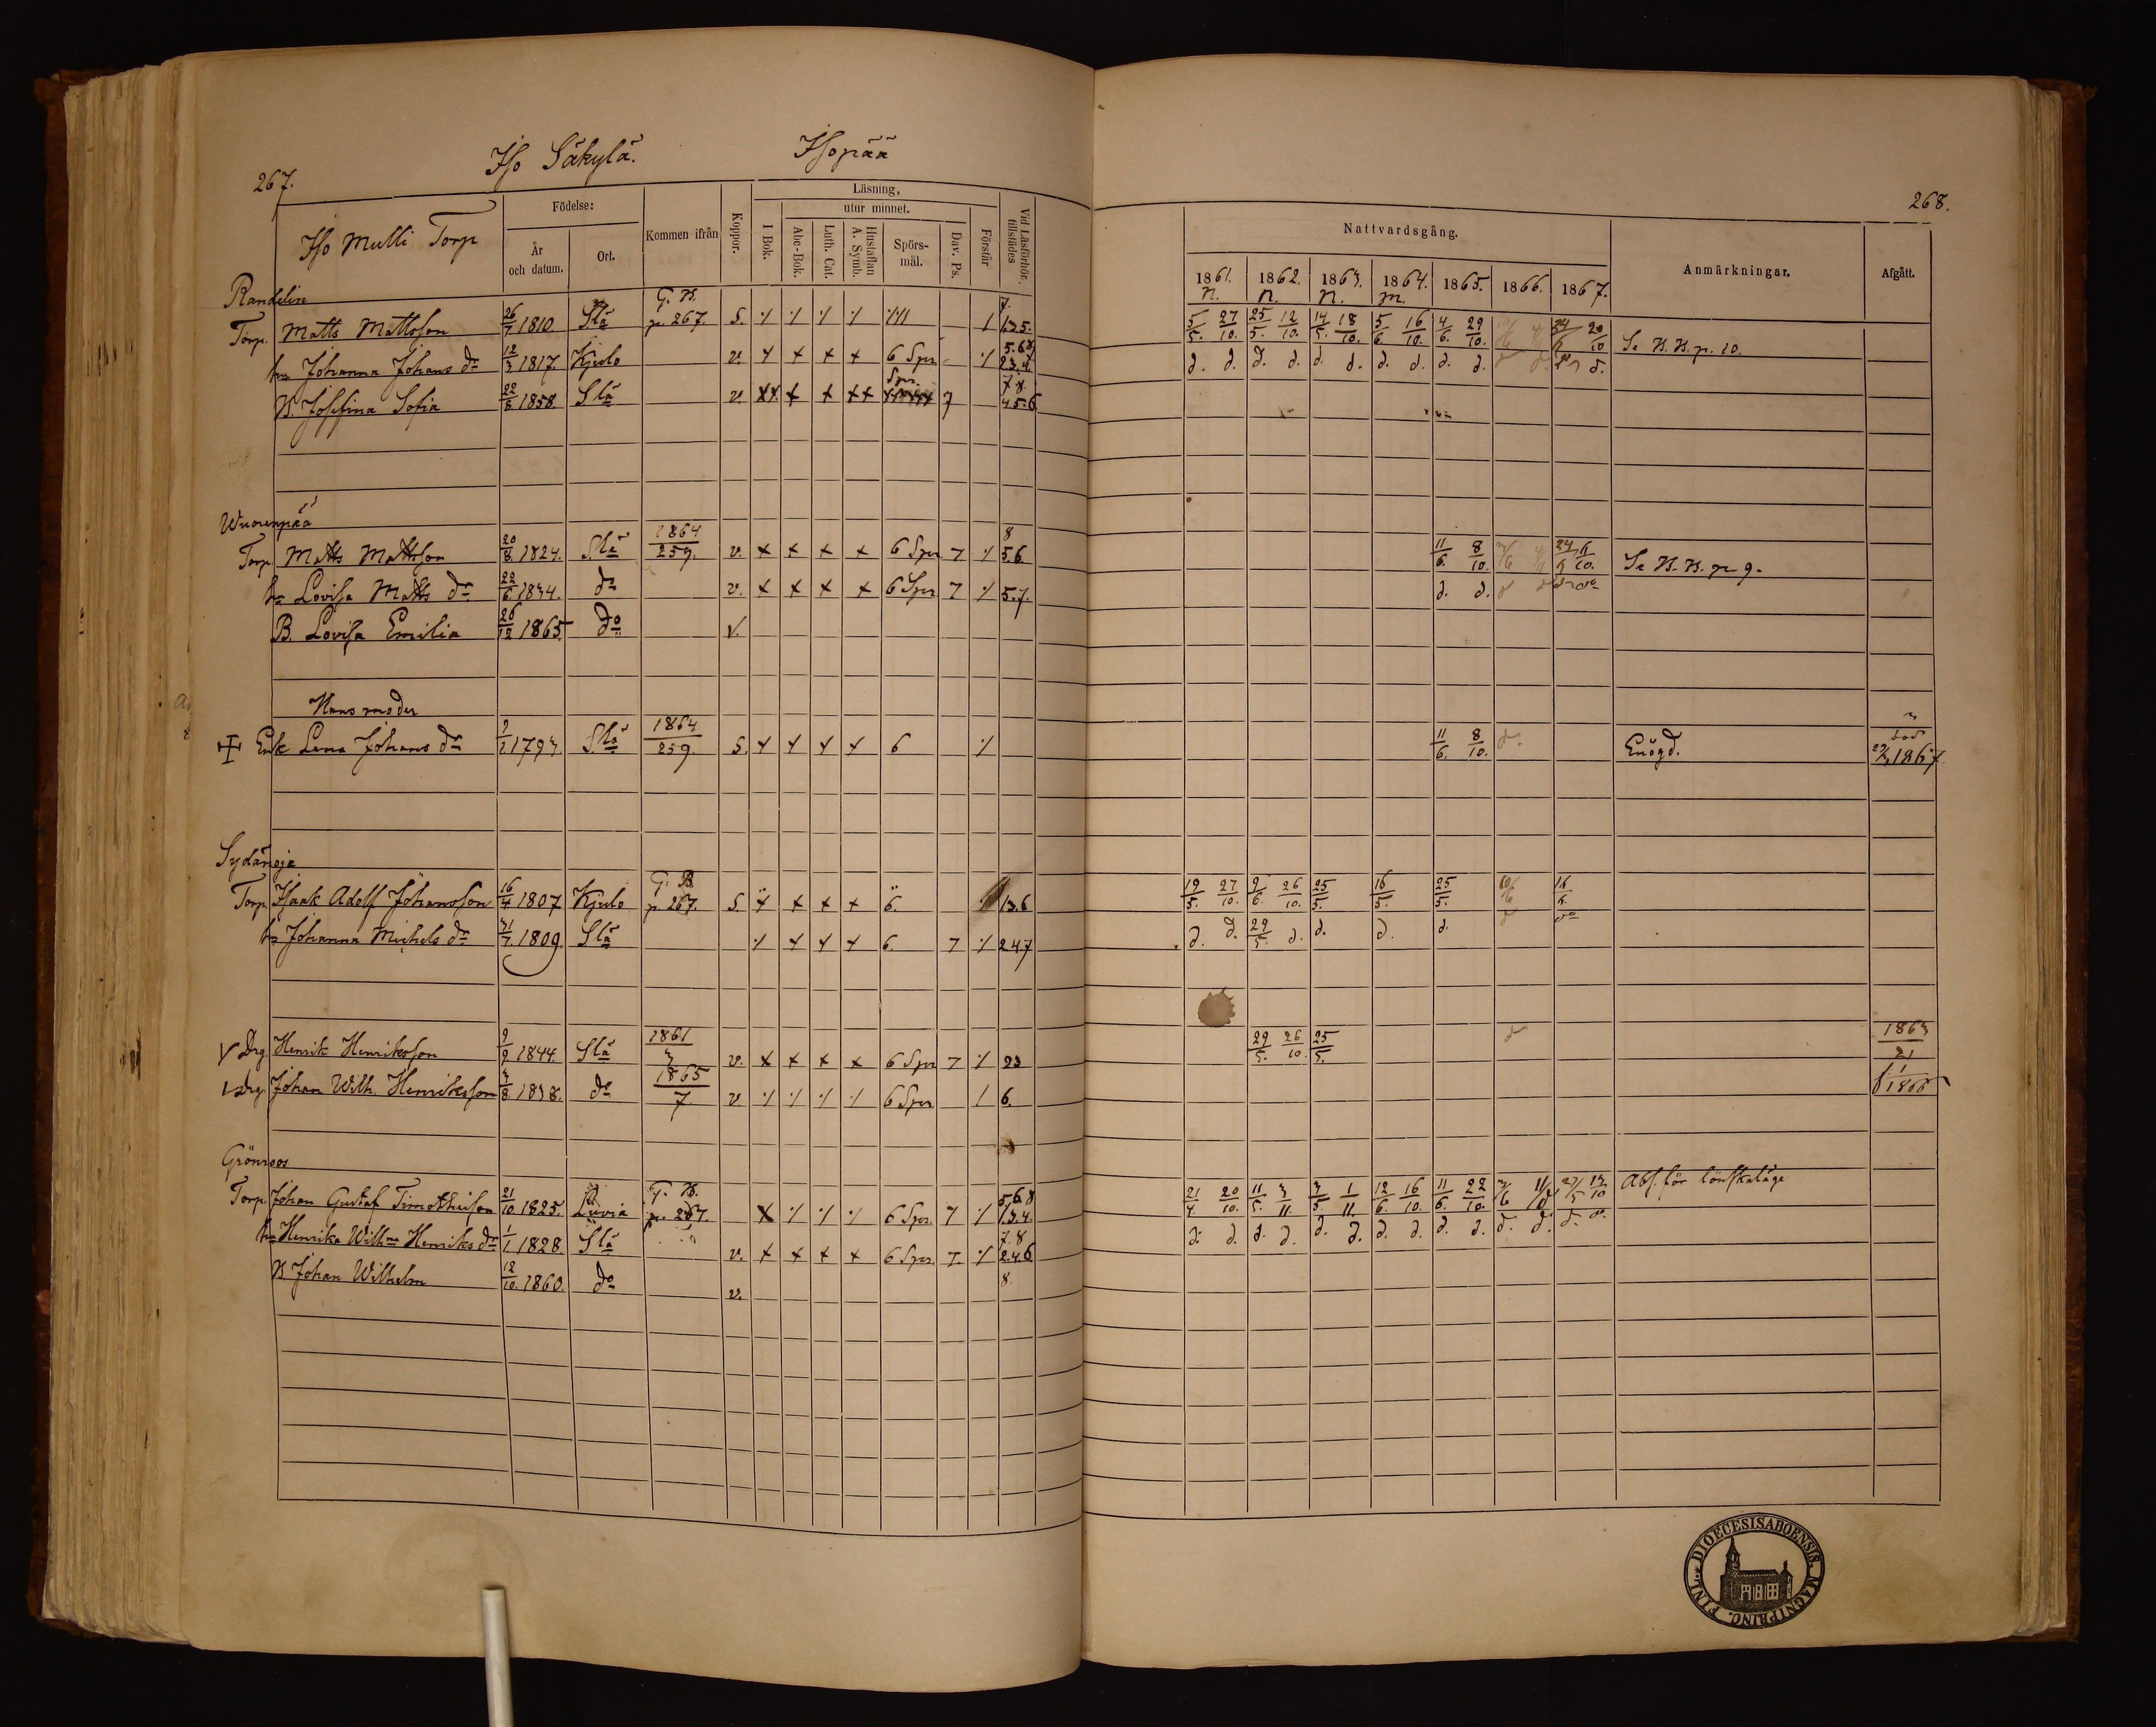 267.
Iso Säkylä.
Isopää
268.
Iso Mulli Torp
Födelse:
År och datum.
Ort.
Kommen ifrån
Koppor.
Läsning,
I Bok.
utur minnet.
Abc-Bok.
Luth. Cat.
Hustaflan A. Symb.
Spörs-mål.
Dav. Ps.
Förstår
Vid Läsförhör. tillstädes
Nattvardsgång.
1861. 1862. 1863. 1864. 1865. 1866. 1867.
Anmärkningar.
Afgått.
Randelin
Torp. Matts Mattsson 26/7 1810 Slä G. B. p. 267. S. 1 1.3.5. 7. 5/5. 27/10. 25/5. 12/10. 14/5. 18/10. 5/6. 16/10. 4/6. 29/10. Se N. B. p. 10.
hu Johanna Johans dr 12/3 1817. Kjulo v. 6 Spr 5.6.8 2.3.4. d. d. d. d. d. d. d. d. d. d.
B. Josefina Sofia 22/8 1858. Slä v. Spr. 7 7.8 4.5.6
Wuorenpää
Torp Matts Mattsson 20/8 1824. Slä 1864/259. v. 6 Spr 7 8 5.6 11/6. 8/10. Se N. B. p. 9.
hu Lovisa Matts dr 22/6 1834. do v. 6 Spr 7 5.7. d. d.
B. Lovisa Emilia 26/12 1865 do v.
Hans moder
Enk Lena Johans dr 1793. Slä 1864/259. S. 6 11/6. 8/10. Enögd. död 1867
Sydänoja
Torp Isaak Adolf Johansson 16/4 1807 Kjulo G. B. p. 267. S. 6. 1.3.6 19/5. 27/10. 9/6. 26/10. 25/5. 16/5. 25/5.
hu Johanna Michels dr 31/7. 1809. Slä 6. 7 2.4.7 d. d. 29/5. d. d. d. d.
Drg. Henrik Henriksson 9/9 1844. Slä 1861/3 v. 6 Spr 7 23 29/5. 26/10. 25/5. 1863/21
Drg. Johan Wilh. Henriksson 3/8 1838. do 1865/7 v. 6 Spr 1 6. 1866
Grönroos
Torp. Johan Gustaf Timotheisson 21/10 1825. Luvia G. B. p. 267. 6 Spr. 7 5.6.8 1.3.4. 21/4. 20/10. 11/5. 3/11. 3/5. 1/11. 12/6. 16/10. 11/6. 22/10. Abs. för lönskaläge
hu Henrika Wilhna Henriks dr 1/1 1828. Slä v. 6 Spr. 7. 7.8 2.4.6 d. d. d. d. d. d. d. d. d. d. d. d.
B Johan Wilhelm 12/10. 1860. do v. 8.
FINL. DIOECESIS ABOENSIS. MAGNI PRINC.